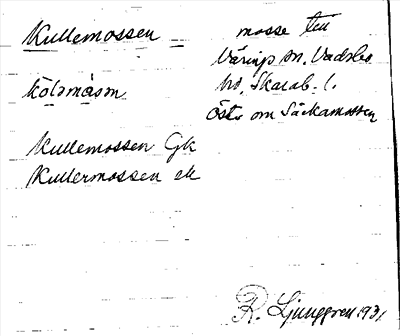 Kullemossen mosse till
Väring sn. Vadsbo
köləmåsən hd. Skarab. l.
Öster om Säckamossen
Kullemossen Gk
Kullermossen ek
R. Ljunggren 1931